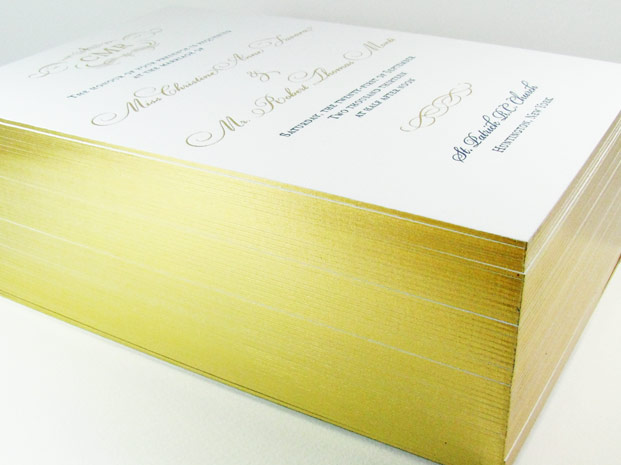 CMR
The honour of your presence is requested
at the marriage of
Miss Christine Anne
&
Mr. Robert Thomas
Saturday, the twenty-first of September
Two thousand thirteen
at half after four
St. Patrick R.C. Church
Huntington, New York